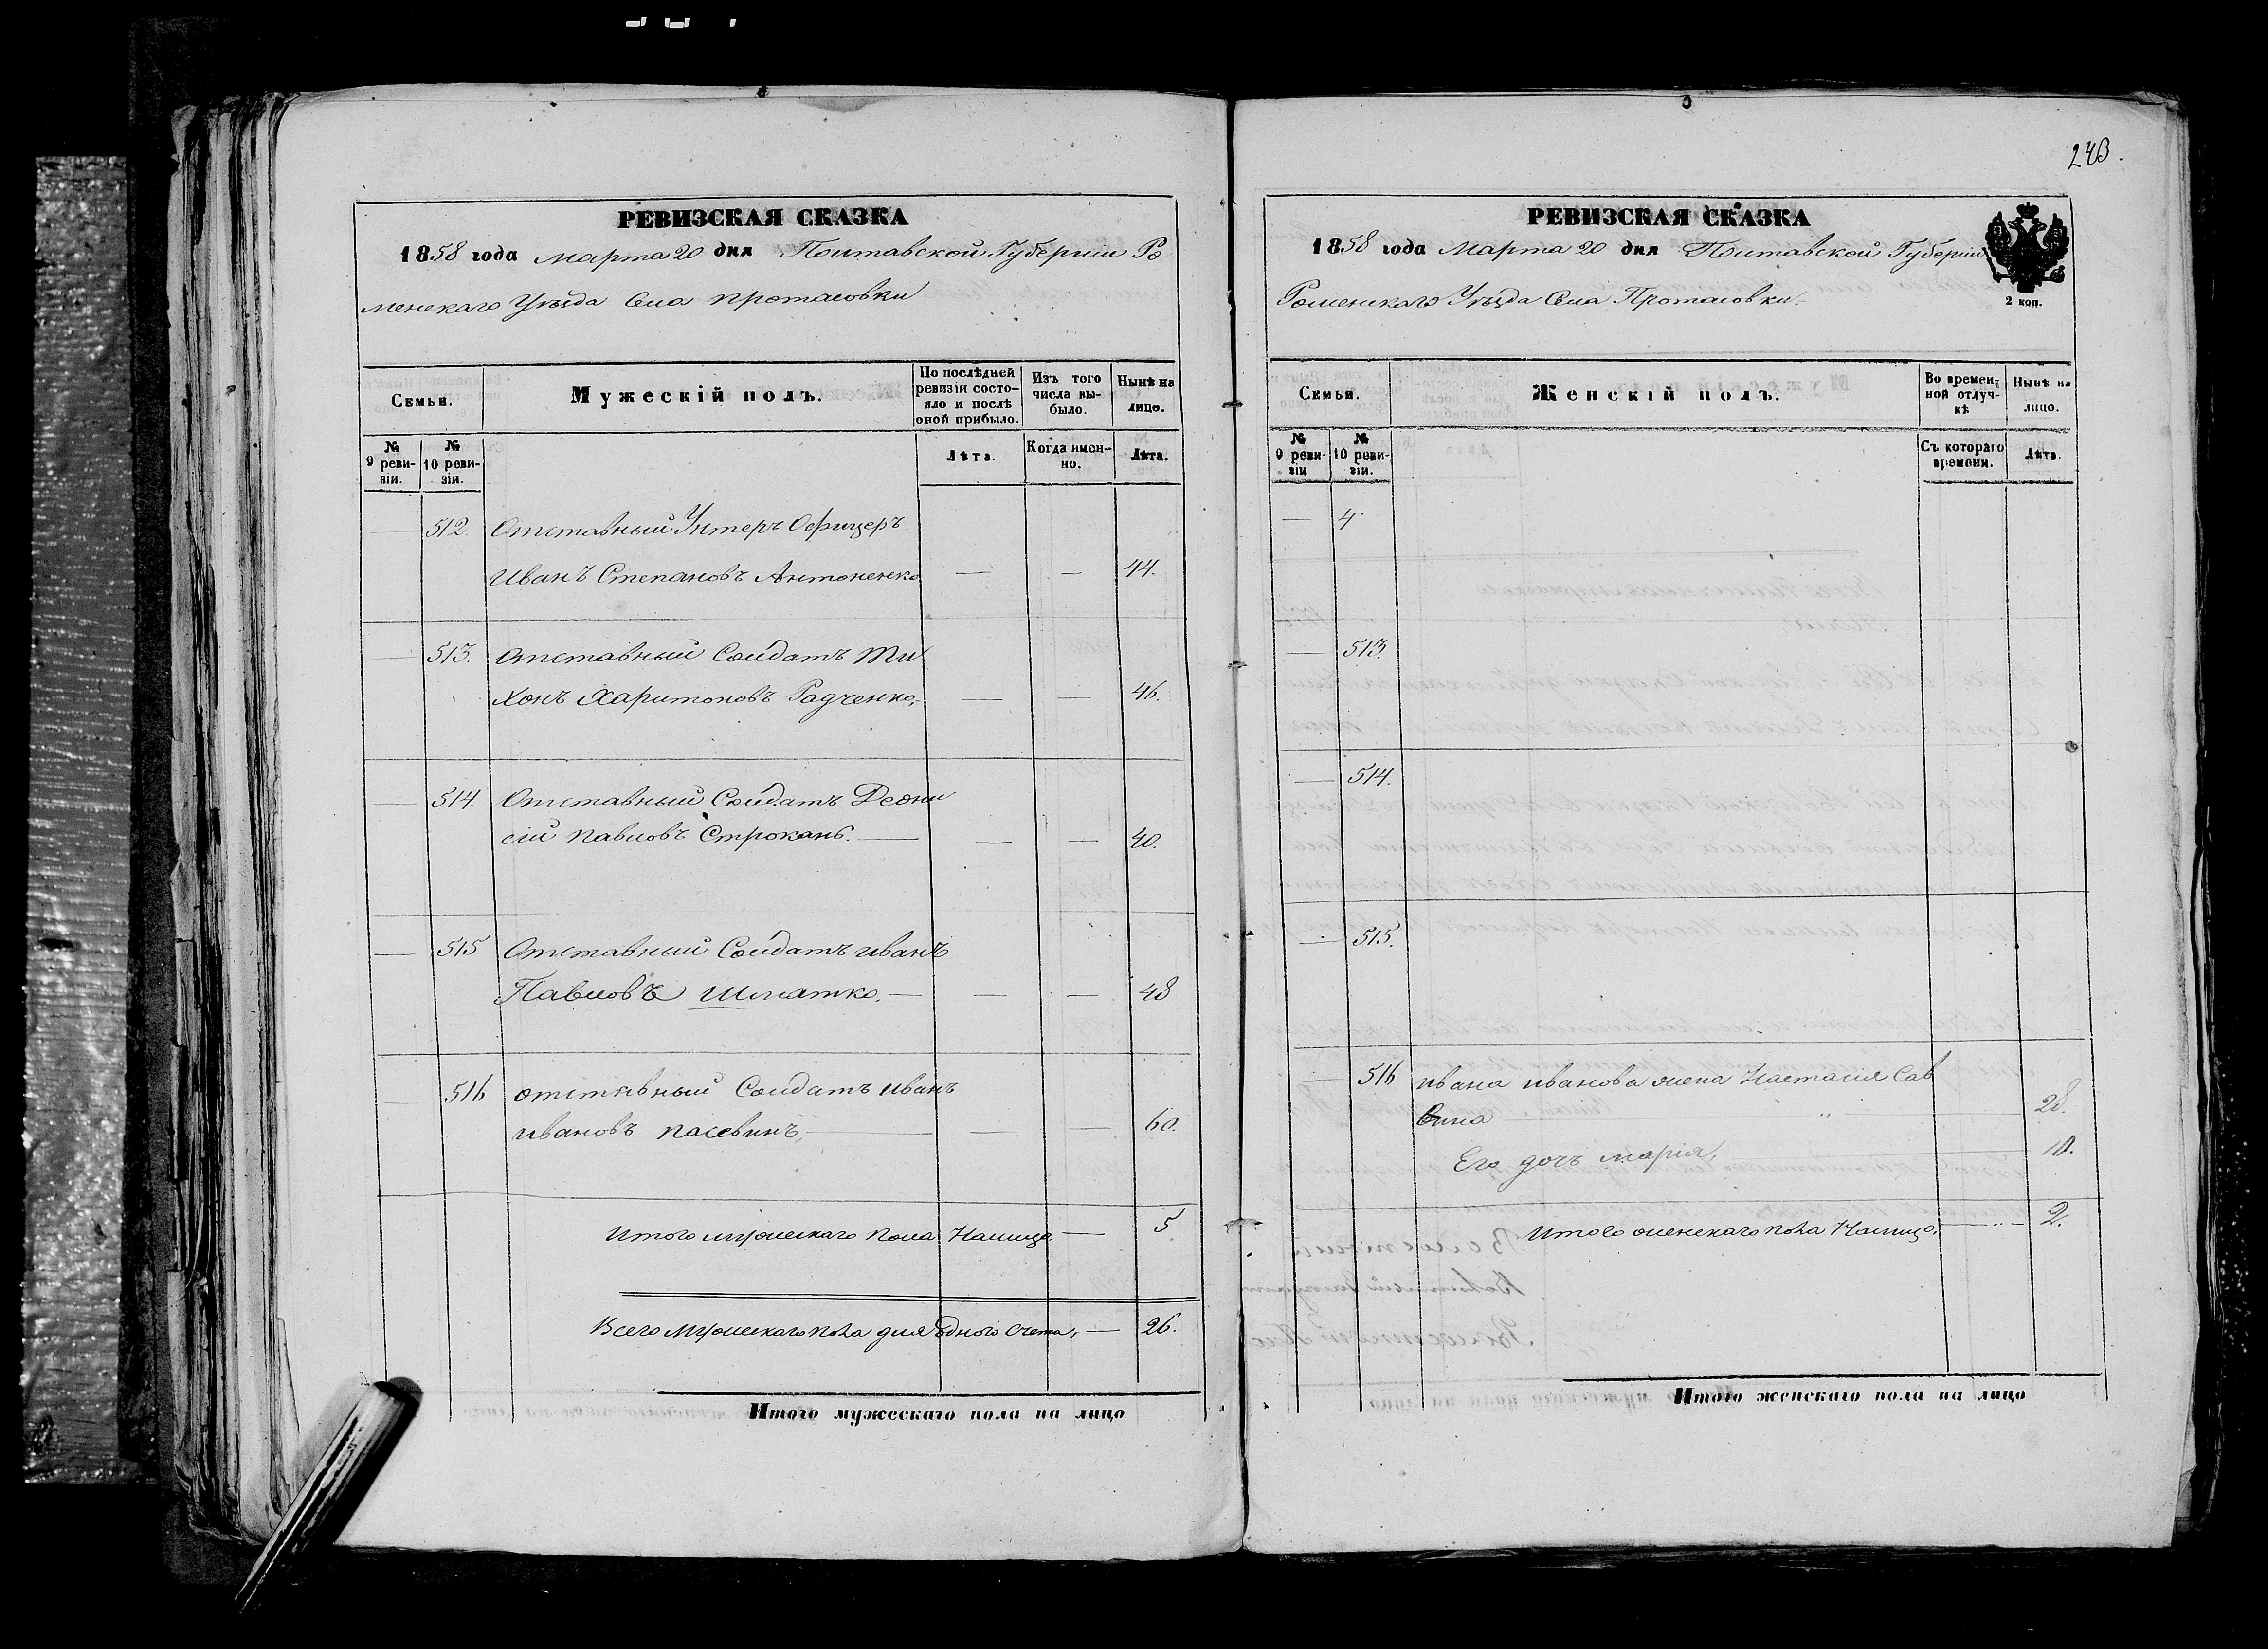 243.
РЕВИЗСКАЯ СКАЗКА
1858 года Марта 20 дня Полтавской Губерніи Ро
менскаго Уѣзда Села Протасовки
Семьи.
Мужескій полъ.
По послѣдней ревизіи состояло и послѣ оной прибыло.
Изъ того числа выбыло.
Нынѣ на лицо.
№ 9 ревизіи.
№ 10 ревизіи.
Лѣта.
Когда именно.
Лѣта.
— 512. Отставный Унтеръ Офицеръ
Иванъ Степановъ Антоненко — — 44.
— 513. Отставный Солдатъ Ти
хонъ Харитоновъ Радченко, — — 46.
— 514. Отставный Солдатъ Деони
сій Павловъ Строкань. — — — 40.
— 515 Отставный Солдатъ Иванъ
Павловъ Шматко. — — — 48
— 516 отставный Солдатъ Иванъ
Ивановъ — — — 60.
Итого мужескаго пола Налицо — 5
Всего мужескаго пола для одного счета, — 26.
Итого мужескаго пола на лицо
РЕВИЗСКАЯ СКАЗКА
1858 года Марта 20 дня Полтавской Губерніи
Роменскаго Уѣзда Села Протасовки.
2 коп.
Семьи.
Женскій полъ.
Во временной отлучкѣ
Нынѣ на лицо.
№ 9 ревизіи
№ 10 ревизіи.
Съ котораго времени.
Лѣта.
— 4.
— 513.
— 514.
— 515.
— 516 Ивана Иванова жена Настасія Сав
вина — „ — 28.
Его дочь Марія, — 10.
Итого женскаго пола Налицо. — „ — 2.
Итого женскаго пола на лицо